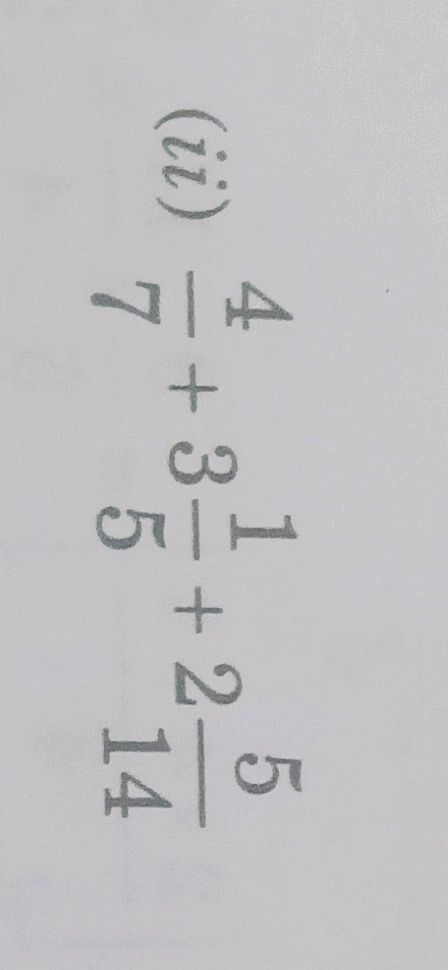 (ii) 4/7 + 3 1/5 + 2 5/14